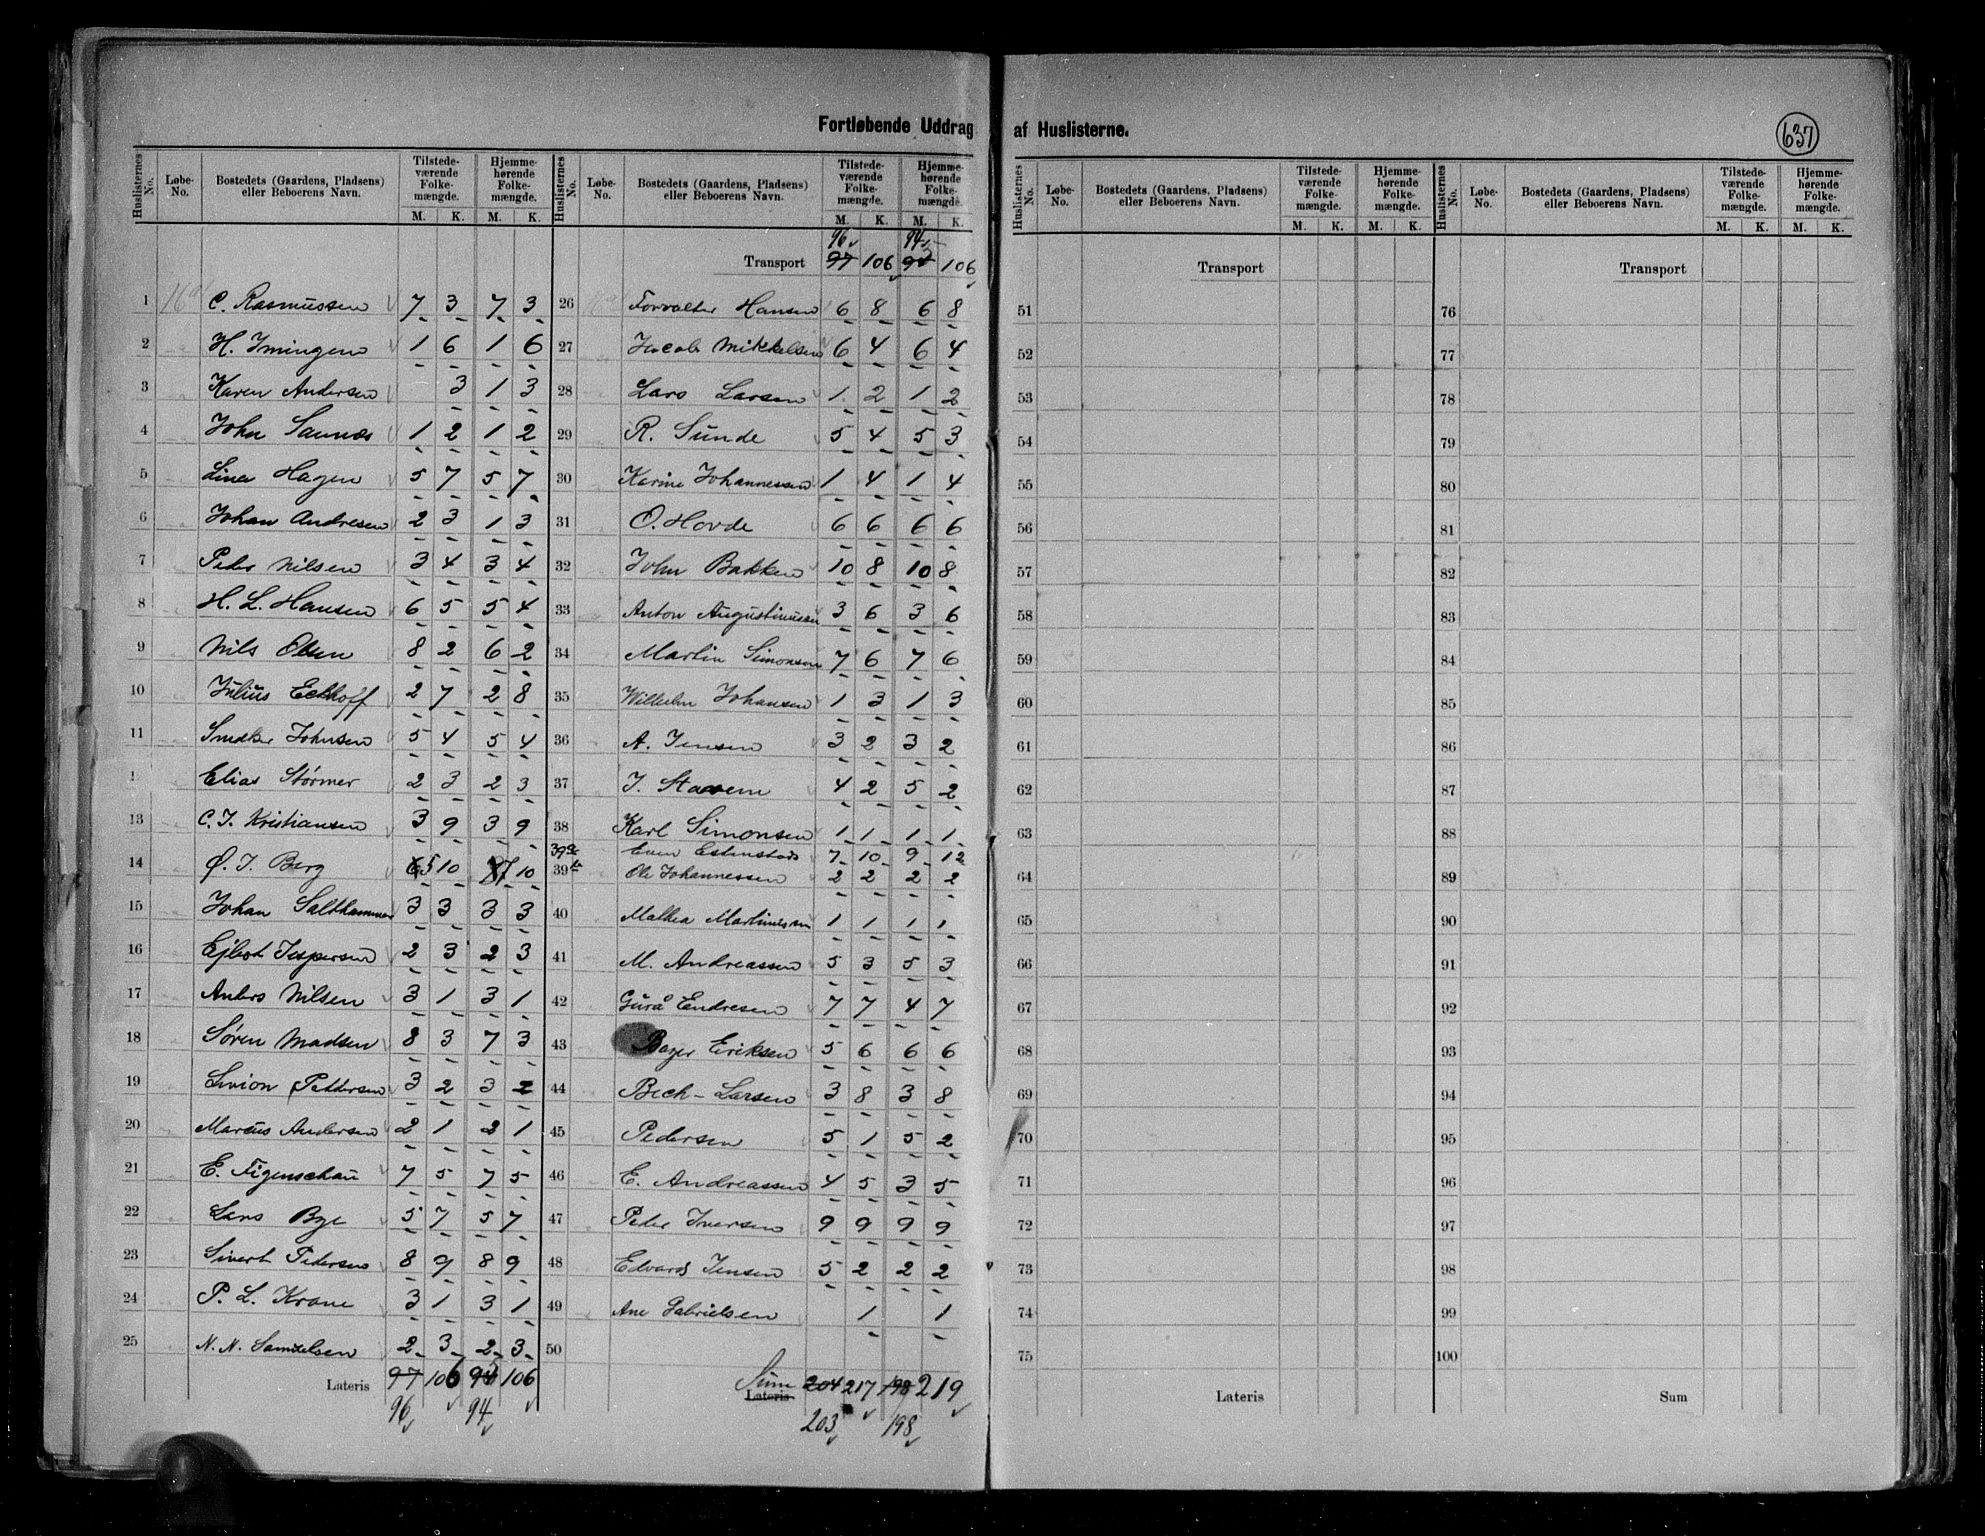 Fortløbende Uddrag af Huslisterne.
637
Huslisternes No. Løbe-No. Bostedets (Gaardens, Pladsens) eller Beboerens Navn. Tilstedeværende Folkemængde. M. K. Hjemmehørende Folkemængde. M. K.
1 16a C. Rasmussen 7 3 7 3
2 H. Imingen 1 6 1 6
3 Karen Andersen 3 1 3
4 John Sannes 1 2 1 2
5 Lina Hagen 5 7 5 7
6 Johan Andresen 2 3 1 3
7 Peder Nilsen 3 4 3 4
8 H. L. Hansen 6 5 5 4
9 Nils Olsen 8 2 6 2
10 Julius Eckhoff 2 7 2 8
11 Smedker Johnsen 5 4 5 4
Elias Størmer 2 3 2 3
13 C. J. Kristiansen 3 9 3 9
14 Ø. J. Berg 5 10 7 10
15 Johan Salthammer 3 3 3 3
16 Ejlert Jespersen 2 3 2 3
17 Anders Nilsen 3 1 3 1
18 Søren Madsen 8 3 7 3
19 Sivion Pettersen 3 2 3 2
20 Marcus Andersen 2 1 2 1
21 E. Figenschau 7 5 7 5
22 Lars Bye 5 7 5 7
23 Sivert Pedersen 8 9 8 9
24 P. L. Krane 3 1 3 1
25 N. N. Samuelsen 2 3 2 3
Lateris 97 106 106
96 94
Huslisternes No. Løbe-No. Bostedets (Gaardens, Pladsens) eller Beboerens Navn. Tilstedeværende Folkemængde. M. K. Hjemmehørende Folkemængde. M. K.
96 94
Transport 97 106 106
26 Forvalter Hansen 6 8 6 8
27 Jacob Mikkelsen 6 4 6 4
28 Lars Larsen 1 2 1 2
29 R. Sunde 5 4 5 3
30 Karine Johannessen 1 4 1 4
31 O. Hovde 6 6 6 6
32 John Bakken 10 8 10 8
33 Anton Augustinussen 3 6 3 6
34 Martin Simonsen 7 6 7 6
35 Wilhelm Johansen 1 3 1 3
36 A. Jensen 3 2 3 2
37 J. Stavem 4 2 5 2
38 Karl Simonsen 1 1 1 1
39 Even Estenstad 7 10 9 12
39 Ole Johannessen 2 2 2 2
40 Malkea Martinussen 1 1 1 1
41 M. Andreassen 5 3 5 3
42 Gurå Endresen 7 7 4 7
43 Bajer Eriksen 5 6 6 6
44 Bech-Larsen 3 8 3 8
45 Pedersen 5 1 5 2
46 E. Andreassen 4 5 3 5
47 Peder Iversen 9 9 9 9
48 Edvard Jensen 5 2 2 2
49 Ane Gabrielsen 1 1
50
Sum Lateris 204 217 198 219
203 198
Huslisternes No. Løbe-No. Bostedets (Gaardens, Pladsens) eller Beboerens Navn. Tilstedeværende Folkemængde. M. K. Hjemmehørende Folkemængde. M. K.
Transport
51
52
53
54
55
56
57
58
59
60
61
62
63
64
65
66
67
68
69
70
71
72
73
74
75
Lateris
Huslisternes No. Løbe-No. Bostedets (Gaardens, Pladsens) eller Beboerens Navn. Tilstedeværende Folkemængde. M. K. Hjemmehørende Folkemængde. M. K.
Transport
76
77
78
79
80
81
82
83
84
85
86
87
88
89
90
91
92
93
94
95
96
97
98
99
100
Sum